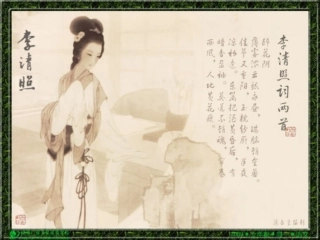 李清照词两首
醉花阴
薄雾浓云愁永昼，瑞脑销金兽。
佳节又重阳，玉枕纱厨，半夜
凉初透。东篱把酒黄昏后，有
暗香盈袖。莫道不销魂，帘卷
西风，人比黄花瘦。
李清照